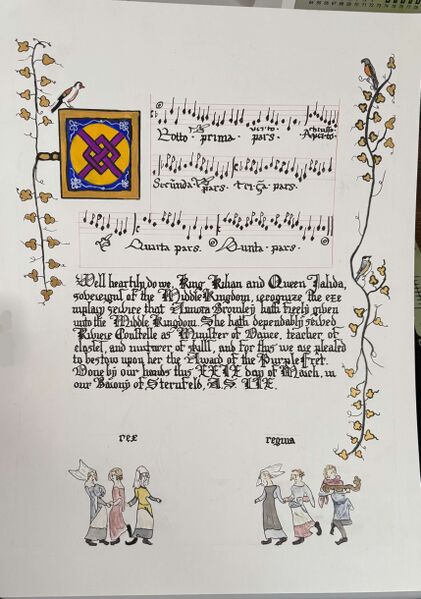 Rotto · prima · verto pars · chiusso Apverto
Secunda pars. terça pars.
Quarta pars. Quinta · pars ·
Well heartily do we, King Kihan and Queen Jahda,
sovereigns of the Middle Kingdom, recognize the exe
mplary service that Amora Bromley hath freely given
unto the Middle Kingdom. She hath dependably served
Riviere Constelle as Minister of Dance, teacher of
and nurturer of skill, and for this we are pleased
to bestow upon her the Award of the Purple Fret.
Done by our hands this XXIX day of March, in
our Barony of Sternfeld, A.S. LIX.
rex regina